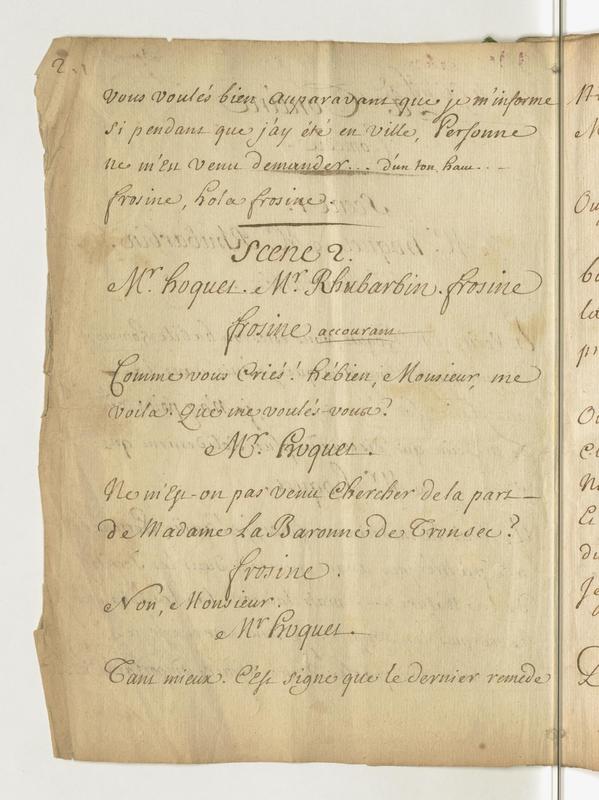 2.
vous voulés bien auparavant que je m'informe
si pendant que j'ay été en ville, Personne
ne m'est venu demander... d'un ton haut...
frosine, hola frosine.
Scene 2.
Mr. hoquet. Mr. Rhubarbin. frosine
frosine accourant
Comme vous Criés! hébien, Monsieur, me
voila. Que me voulés-vous?
Mr. hoquet.
Ne m'est-on pas venu Chercher de la part
de Madame la Baronne de Tronsec?
frosine.
Non, Monsieur.
Mr hoquet.
Tant mieux. C'est signe que le dernier reméde